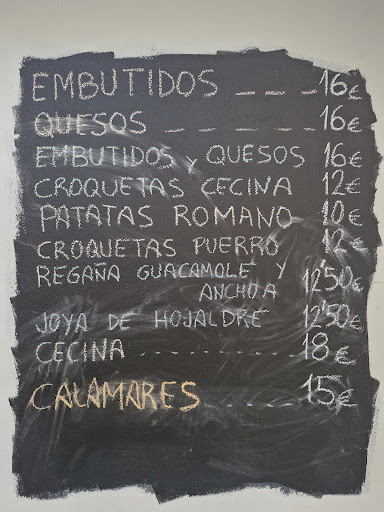 EMBUTIDOS _ _ _ 16€
QUESOS _ _ _ _ _ 16€
EMBUTIDOS y QUESOS 16€
CROQUETAS CECINA 12€
PATATAS ROMANO 10€
CROQUETAS PUERRO 12€
REGAÑA GUACAMOLE Y
ANCHOA 12'50€
JOYA DE HOJALDRE 12'50€
CECINA ............ 18€
CALAMARES _ _ _ _ _ 15€